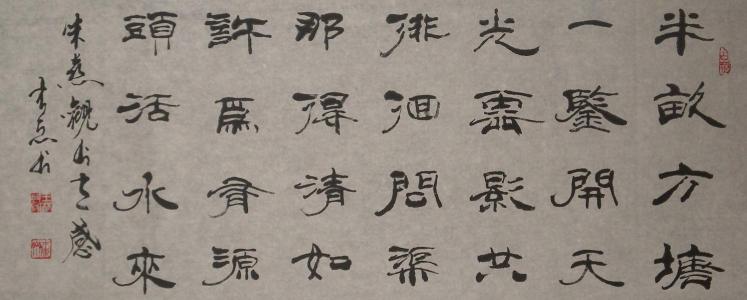 半畝方塘
一鑒開天
光雲影共
徘徊問渠
那得清如
許為有源
頭活水來
朱熹觀书有感